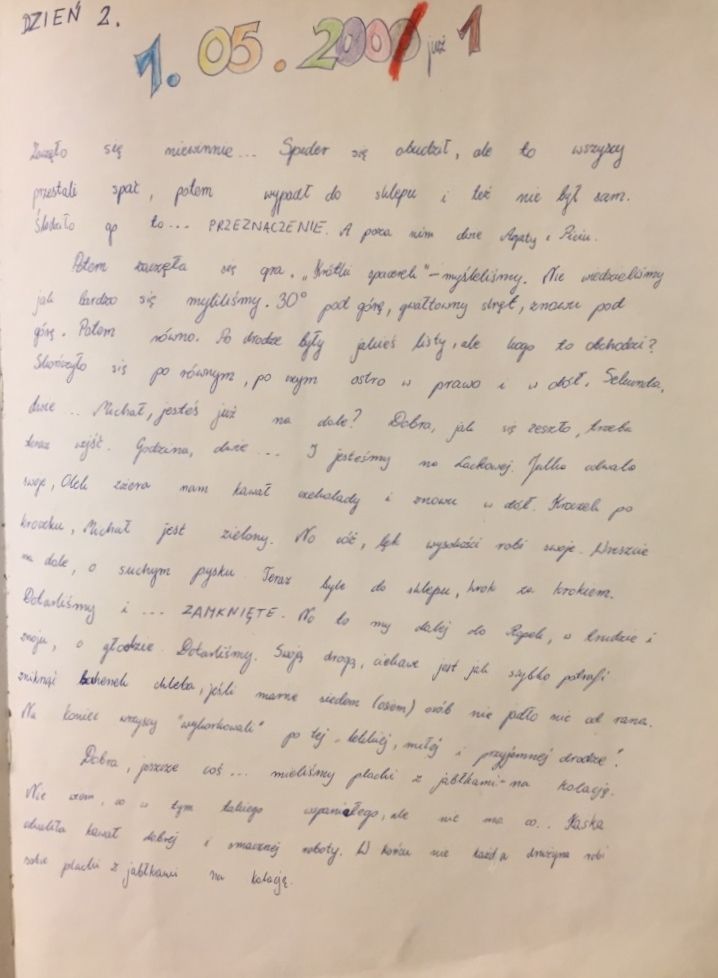 DZIEŃ 2.
1. 05. 2000/ już 1
Zaczęło się niewinnie... Spider się obudził, ale to wszyscy
przestali spać, potem wypadł do sklepu i też nie był sam.
Śledziło go to... PRZEZNACZENIE. A poza nim dwie Agaty i Piciu.
Potem zaczęła się gra. „Krótki spacerek" - myśleliśmy. Nie wiedzieliśmy
jak bardzo się myliliśmy. 30° pod górę, gwałtowny skręt, znowu pod
górę. Potem równo. Po drodze były jakieś listy, ale kogo to obchodzi?
Skończyło się po równym, po czym ostro w prawo i w dół. Sekunda,
dwie... Michał, jesteś już na dole? Dobra, jak się zeszło, trzeba
teraz wejść. Godzina, dwie... I jesteśmy na Lackowej. Julka odwala
swoje, Olek zżera nam kawał czekolady i znowu w dół. Kroczek po
kroczku, Michał jest zielony. No cóż, lęk wysokości robi swoje. Wreszcie
na dole, o suchym pysku. Teraz byle do sklepu, krok za krokiem.
Dotarliśmy i ... ZAMKNIĘTE. No to my dalej do Ropek, w trudzie i
znoju, o głodzie. Dotarliśmy. Swoją drogą, ciekawe jest jak szybko potrafi
zniknąć bochenek chleba, jeśli marne siedem (osiem) osób nie jadło nic od rana.
Na koniec wszyscy "wykorkowali" po tej „lekkiej, miłej i przyjemnej drodze".
Dobra, jeszcze coś... mieliśmy placki z jabłkami na kolację.
Nie wiem, co w tym takiego wspaniałego, ale nic ma co... Kaśka
odwaliła kawał dobrej i smacznej roboty. W końcu nie każda drużyna robi
sobie placki z jabłkami na kolację.